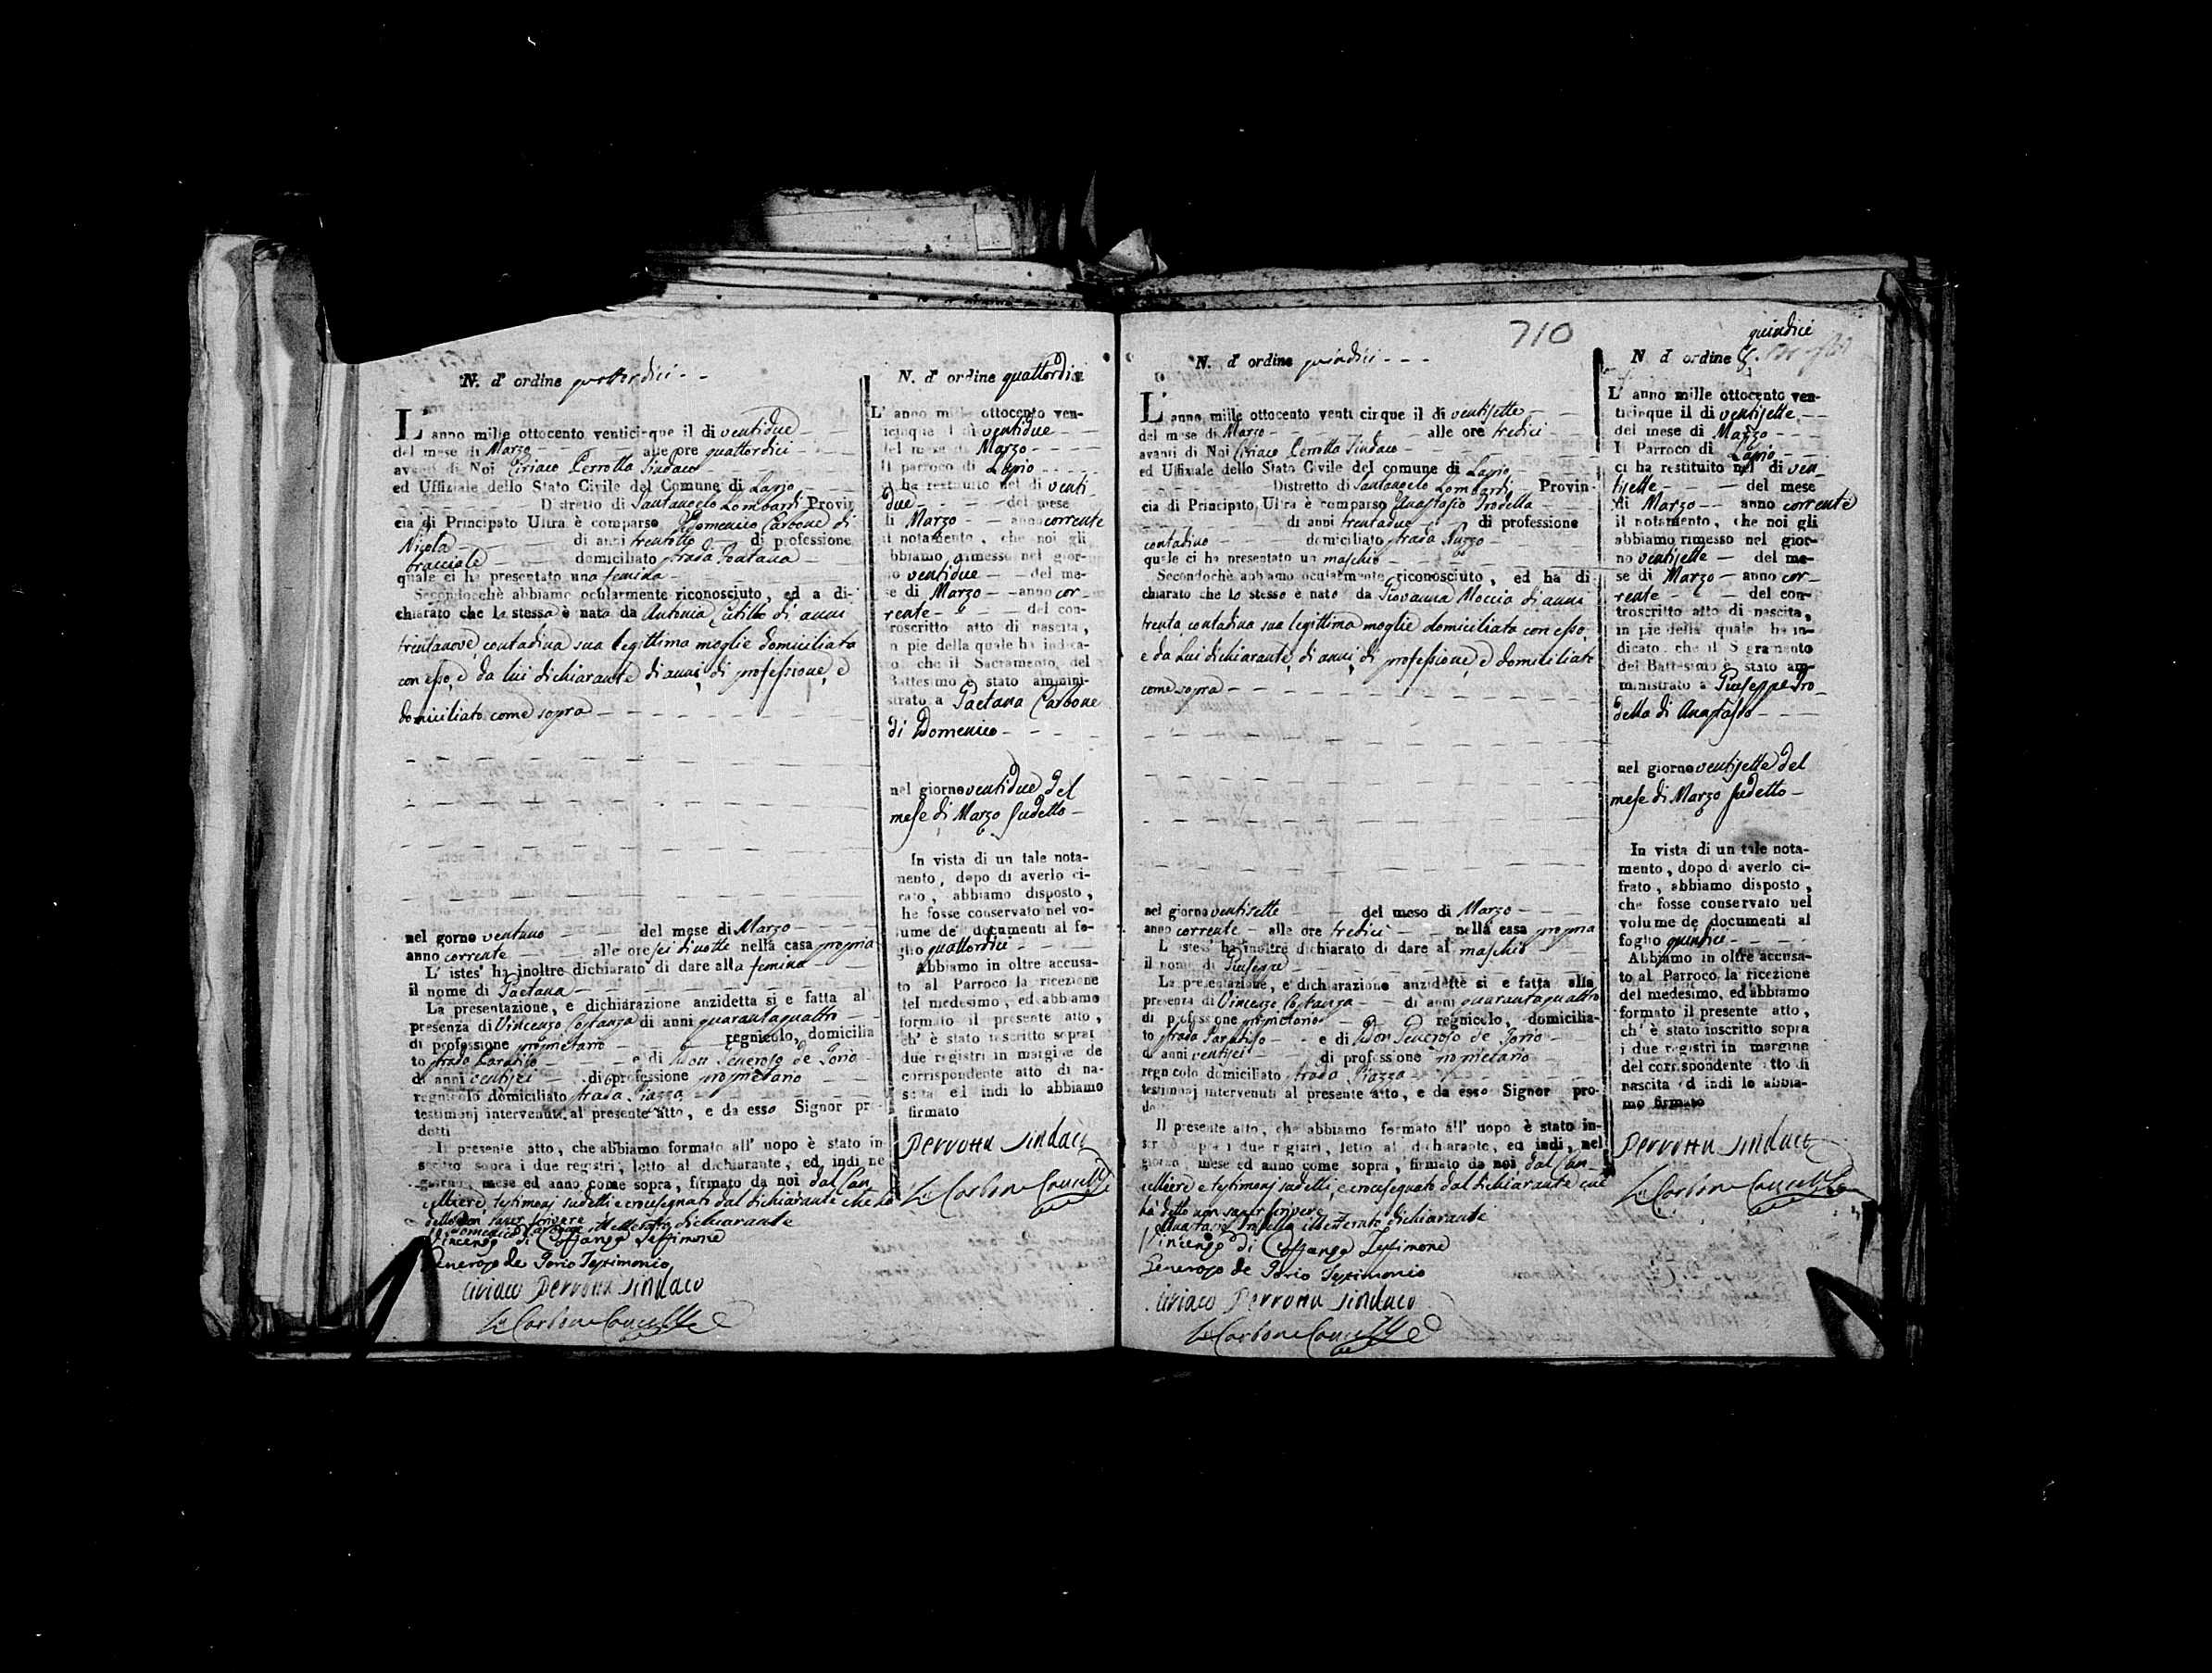 N. d' ordine quattordici
L' anno mille ottocento venticinque il di ventidue
del mese di Marzo alle ore quattordici
avanti di Noi Ciriaco Perrotta Sindaco
ed Uffiziale dello Stato Civile del Comune di Lapio
Distretto di Santangelo Lombardi Provin
cia di Principato Ultra è comparso Domenico Carbone di
Nicola di anni trentotto di professione
bracciale domiciliato strada Fontana
quale ci ha presentato una femina
Secondocchè abbiamo ocularmente riconosciuto, ed a di-
chiarato che la stessa è nata da Antonia Cutillo di anni
trentanove, contadina sua legittima moglie domiciliata
con esso, e da lui dichiarante di anni, di professione, e
domiciliato come sopra
nel gorno ventuno del mese di Marzo
anno corrente alle ore sei di notte nella casa propria
L' istes' ha inoltre dichiarato di dare alla femina
il nome di Gaetana
La presentazione, e dichiarazione anzidetta si e fatta al
presenza di Vincenzo Costanza di anni quarantaquattro
di professione proprietario regnicolo, domicilia
to strada Paradiso e di Don Generoso de Iorio
di anni ventisei di professione proprietario
regnicolo domiciliato strada Piazza
testimonj intervenuti al presente atto, e da esso Signor pro
dotti
Il presente atto, che abbiamo formato all' uopo è stato in
scritto sopra i due registri, letto al dichiarante, ed indi ne
giorno, mese ed anno come sopra, firmato da noi dal Can
celliere, testimonj sudetti e crocesegnato dal dichiarante che ha
detto non saper scrivere
Domenico Carbone illetterato dichiarante
Vincenzo di Costanzo Testimone
Generoso de Iorio Testimonio
Ciriaco Perrotta Sindaco
Carbone Cancelle
N. d' ordine quattordici
L' anno mille ottocento ven-
ticinque il di ventidue
del mese di Marzo
Il parroco di Lapio
ci ha restituito nel di venti
due del mese
di Marzo anno corrente
il notamento, che noi gli
abbiamo rimesso nel gior-
no ventidue del me-
se di Marzo anno cor-
rente del con-
troscritto atto di nascita,
in pie della quale ha indica-
to che il Sacramento del
Battesimo è stato ammini-
strato a Gaetana Carbone
di Domenico
nel giorno ventidue del
mese di Marzo sudetto
In vista di un tale nota-
mento, dopo di averlo ci-
frato, abbiamo disposto,
che fosse conservato nel vo-
lume de' documenti al fo-
glio quattordici
Abbiamo in oltre accusa-
to al Parroco la ricezione
del medesimo, ed abbiamo
formato il presente atto,
ch' è stato inscritto sopra i
due registri in margine de
corrispondente atto di na-
scita ed indi lo abbiamo
firmato
Perrotta Sindaco
Carbone Cancelle
710
N. d' ordine quindici
L' anno mille ottocento venti cinque il di ventisette
del mese di Marzo alle ore tredici
avanti di Noi Ciriaco Perrotta Sindaco
ed Uffiziale dello Stato Civile del comune di Lapio
Distretto di Santangelo Lombardi Provin-
cia di Principato Ultra è comparso Anastasio Trodella
di anni trentadue di professione
contadino domiciliato strada Puzzo
quale ci ha presentato un maschio
Secondochè abbiamo ocularmente riconosciuto, ed ha di
chiarato che lo stesso è nato da Giovanna Moccia di anni
trenta contadina sua legittima moglie domiciliata con esso,
e da lui dichiarante, di anni, di professione, e domiciliato
come sopra
nel giorno ventisette del meso di Marzo
anno corrente alle ore tredici nella casa propria
L' istess' ha inoltre dichiarato di dare al maschio
il nome di Giuseppe
La presentazione, e dichiarazione anzidette si e fatta alla
presenza di Vincenzo Costanza di anni quarantaquattro
di professione proprietario regnicolo, domicilia-
to strada Paradiso e di Don Generoso de Iorio
di anni ventisei di professione proprietario
regnicolo domiciliato strada Piazza
testimonj intervenuti al presente atto, e da esso Signor pro-
dotti
Il presente atto, che abbiamo formato all' uopo è stato in-
scritto sopra i due registri, letto al dichiarante, ed indi, nel
giorno, mese ed anno come sopra, firmato da noi dal Can
celliere e testimonj sudetti, e crocesegnato dal dichiarante che
ha detto non saper scrivere
Anastasio Trodella illetterato dichiarante
Vincenzo di Costanzo Testimone
Generoso de Iorio Testimonio
Ciriaco Perrotta Sindaco
Carbone Cancelle
quindici
N. d' ordine
L' anno mille ottocento ven-
ticinque il di ventisette
del mese di Marzo
Il Parroco di Lapio
ci ha restituito nel di ven
tisette del mese
di Marzo anno corrente
il notamento, che noi gli
abbiamo rimesso nel gior-
no ventisette del me-
se di Marzo anno cor-
rente del con-
troscritto atto di nascita,
in pie della quale ha in-
dicato che il Sagramento
del Battesimo è stato am-
ministrato a Giuseppe Tro-
della di Anastasio
nel giorno ventisette del
mese di Marzo sudetto
In vista di un tale nota-
mento, dopo di averlo ci-
frato, abbiamo disposto,
che fosse conservato nel
volume de documenti al
foglio quindici
Abbiamo in oltre accusa-
to al Parroco la ricezione
del medesimo, ed abbiamo
formato il presente atto,
ch' è stato inscritto sopra
i due registri in margine
del corrispondente atto di
nascita ed indi lo abbia-
mo firmato
Perrotta Sindaco
Carbone Cancelle